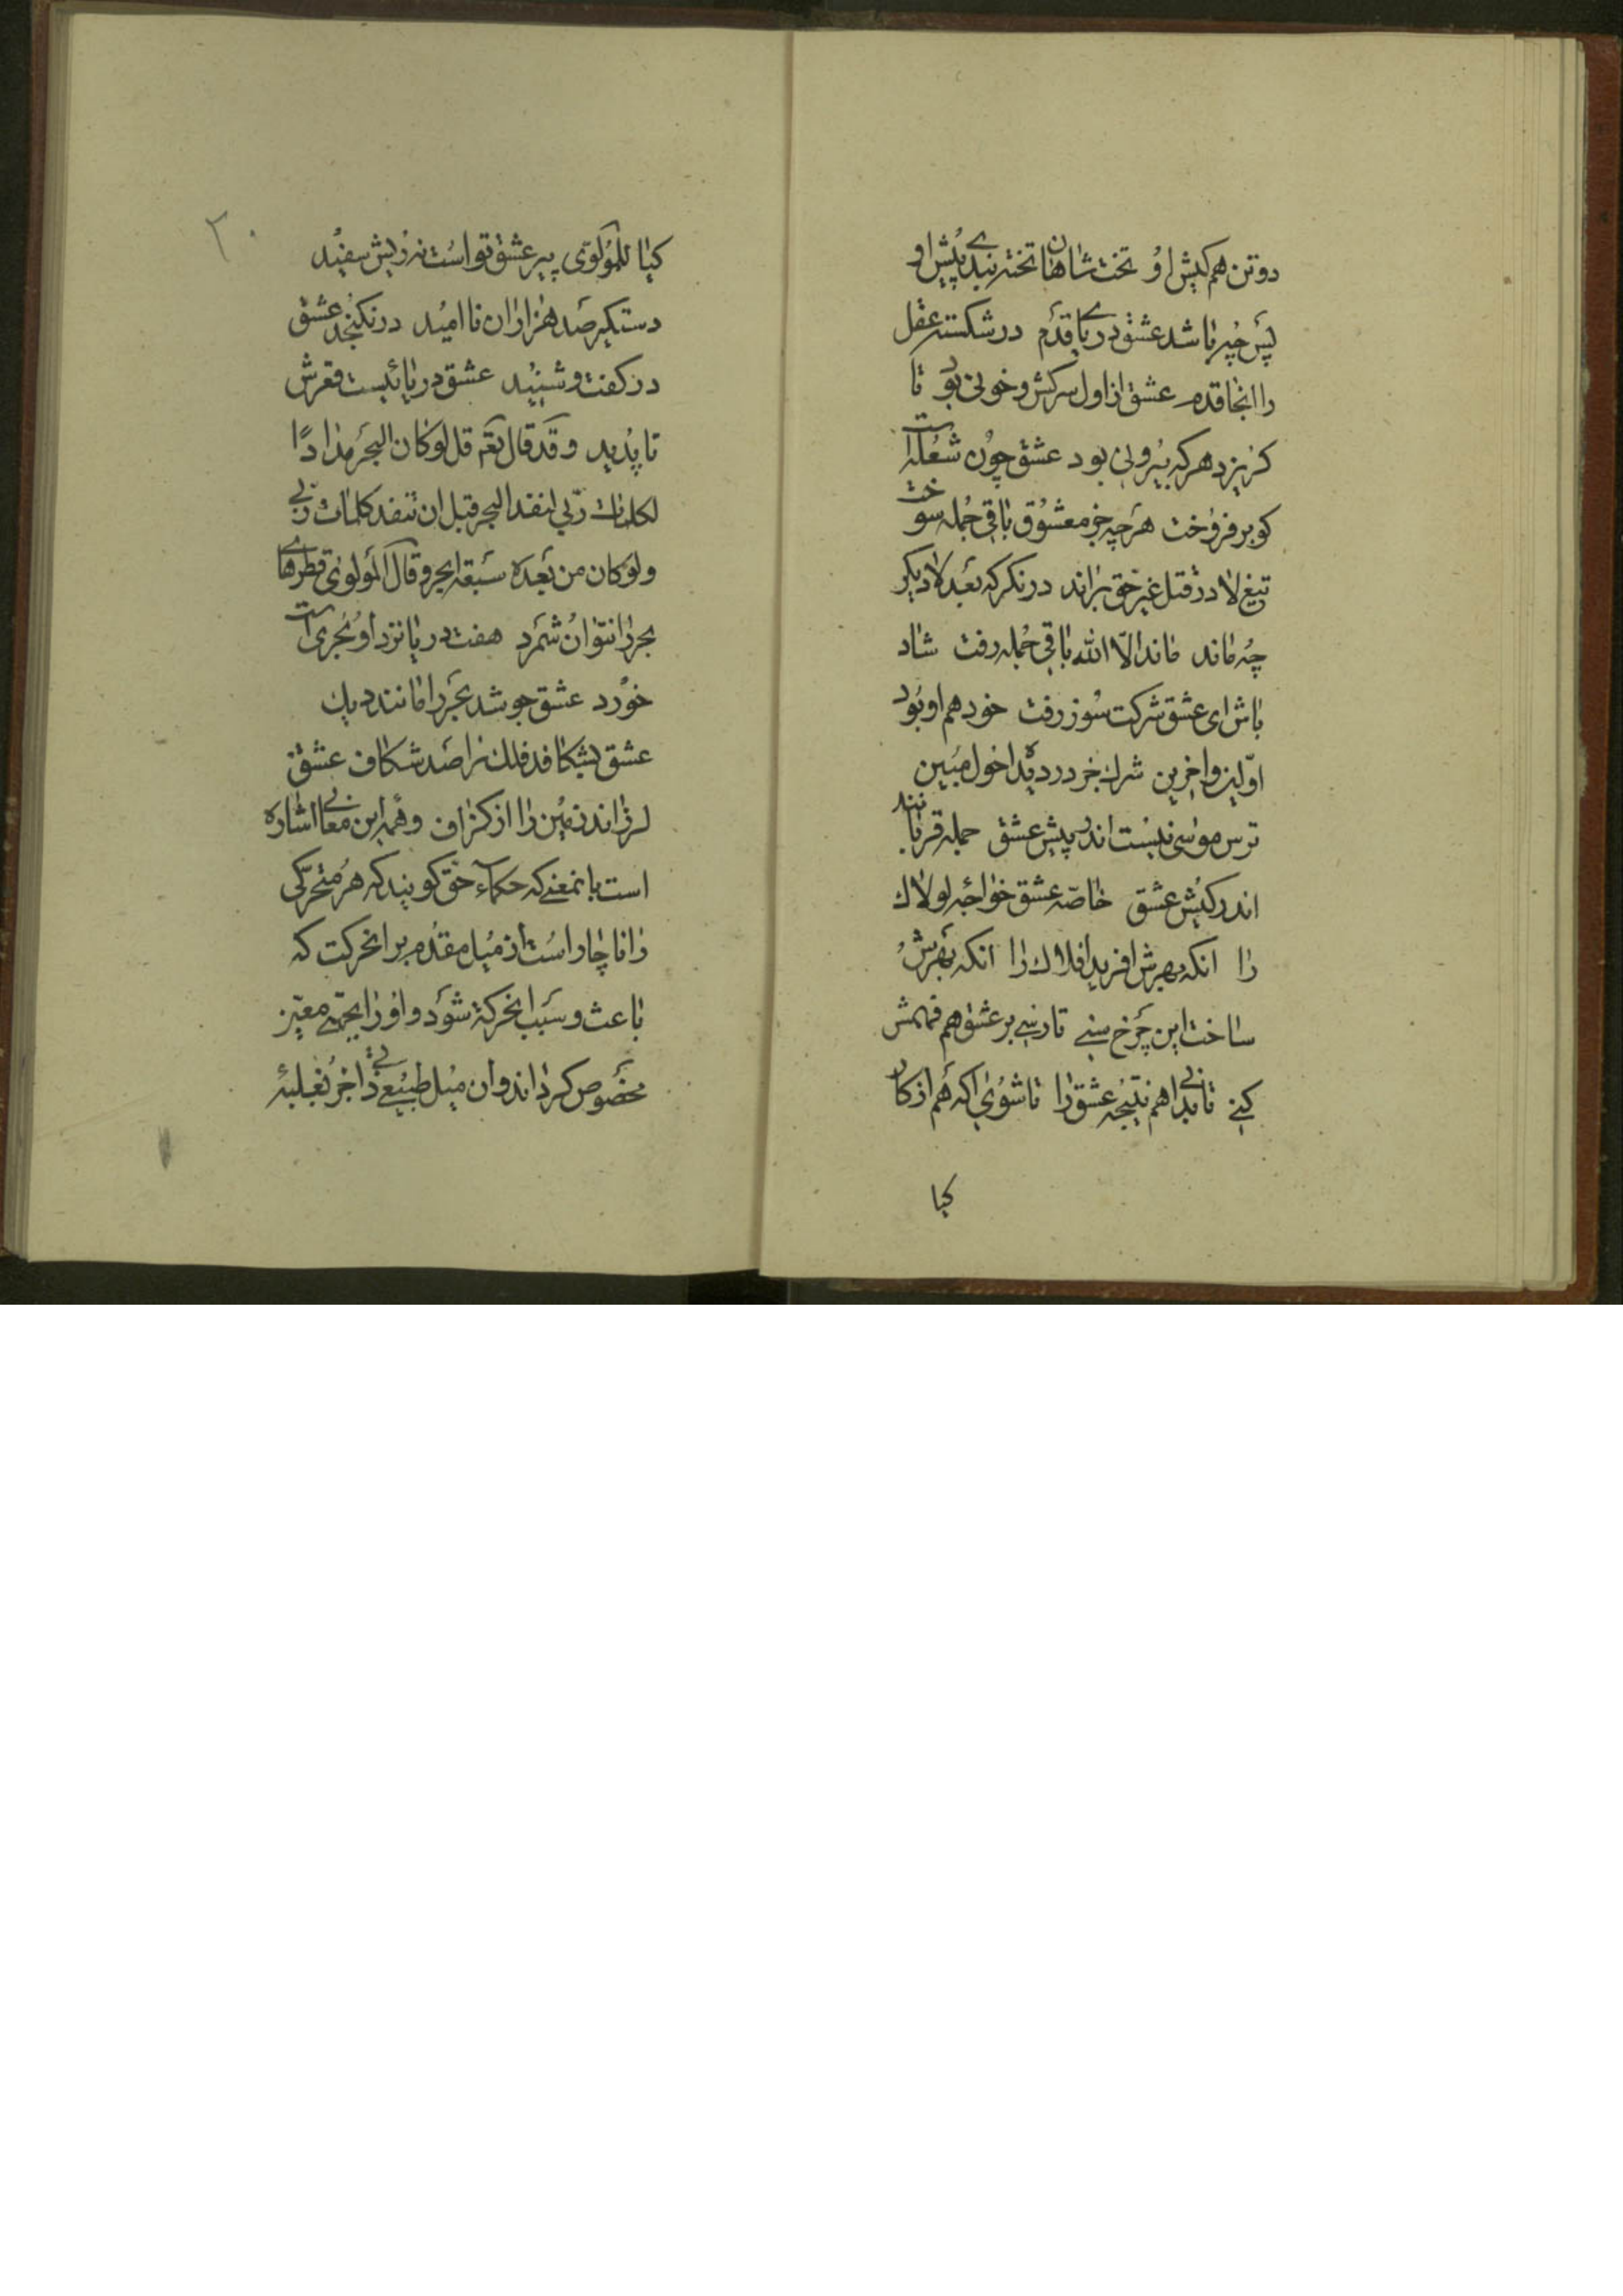 دوتن هم کیش او تخت شاهان تخته بندی پیش او
پس چه باشد عشق دریای قدم در شکسته عقل
را انجا قدم عشق از اول سرکش و خونی بود تا
کریزد هرکه بیرونی بود عشق چون شعله است
کو برفروخت هرچه جز معشوق باقی جمله سوخت
تیغ لا در قتل غیر حق براند درنکر که بعد لا دیکر
چه ماند ماند الا الله باقی جمله رفت شاد
باش ای عشق شرکت سوز رفت خود هم او بود
اولین و اخرین شرک جز در دیده احول مبین
ترس موسی نیست اندر پیش عشق جمله قربانند
اندر کیش عشق خاصه عشق خواجه لولاک
را انکه بهرش افرید افلاک را انکه بهرش
ساخت این چرخ سنی تا رسی بر عشق هم فهمش
کنی تا بدانی هم نتیجه عشق را تا شوی اکه هم از کار
کیا
۲۰
کیا للمولوی پیر عشق تو است نه ریش سفید
دستکیر صد هزاران نا امید درنکنجد عشق
در کفت و شنید عشق دریائیست قعرش
نا پدید و قد قال تعم قل لو کان البحر مدادًا
لکلمات ربّی لنفد البحر قبل ان تنفد کلمات ربی
ولو کان من بعده سبعة ابحر و قال المولوی قطرهای
بحر را نتوان شمرد هفت دریا نزد او بحری است
خورد عشق جوشد بحر را مانند دیک
عشق بشکافد فلک را صد شکاف عشق
لرزاند زمین را از کزاف و همه این معانی اشاره
است بانمعنی که حکماء حق کویند که هر متحرکی
را ناچار است از میل مقدم بر انحرکت که
باعث و سبب انحرکة شود و او را بجهتی معین
مخصوص کرداند وان میل طبیعی ذاتی جز بغلبهٔ